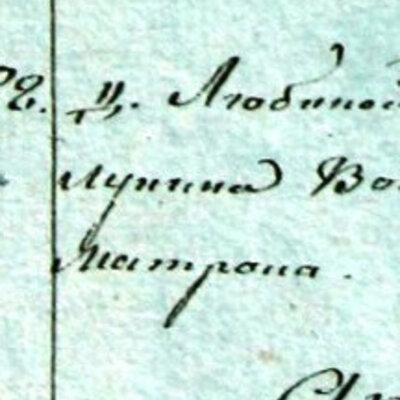 д. Любиной
Лукина Во
Матрона.